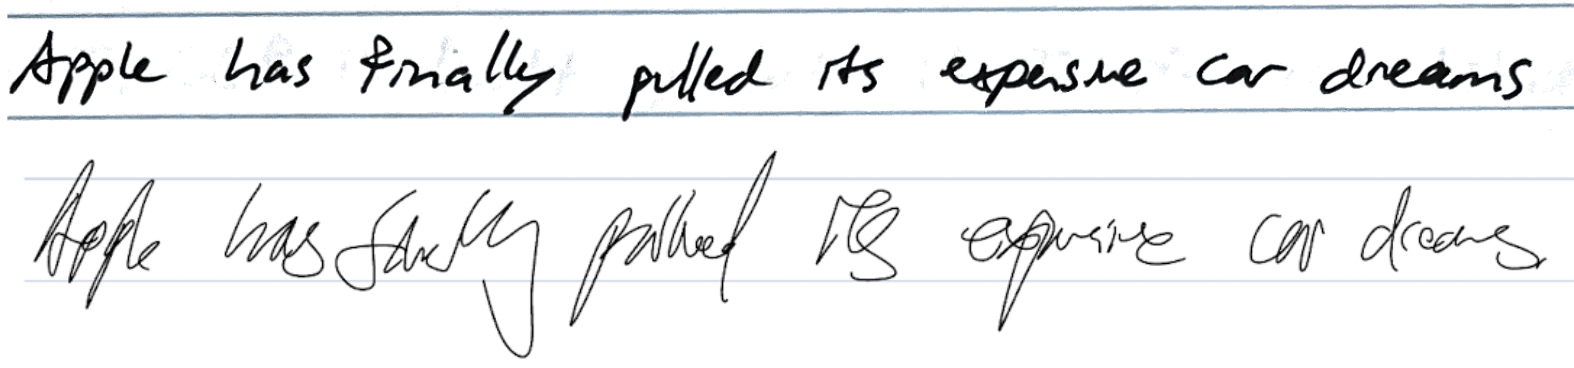 Apple has finally pulled its expensive car dreams
Apple has finally pulled its expensive car dreams